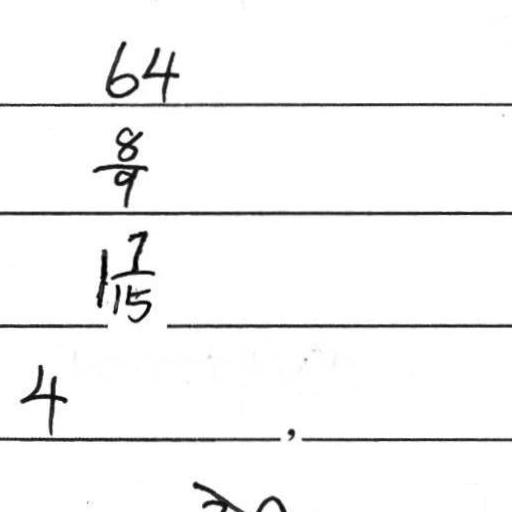 64
8/9
1 7/15
4 ,